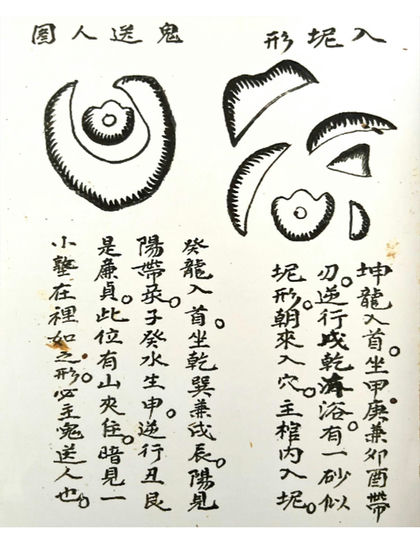 入坭形
坤龍入首。坐甲庚兼卯酉帶
刃。逆行戌乾沐浴。有一砂似
坭形。朝來入穴。主棺內入坭。
鬼送人圖
癸龍入首。坐乾巽兼戌辰。陽見
陽帶子癸水生申。逆行丑艮
是廉貞。此位有山夾住。暗見一
小在裡如之形。必主鬼送人也。